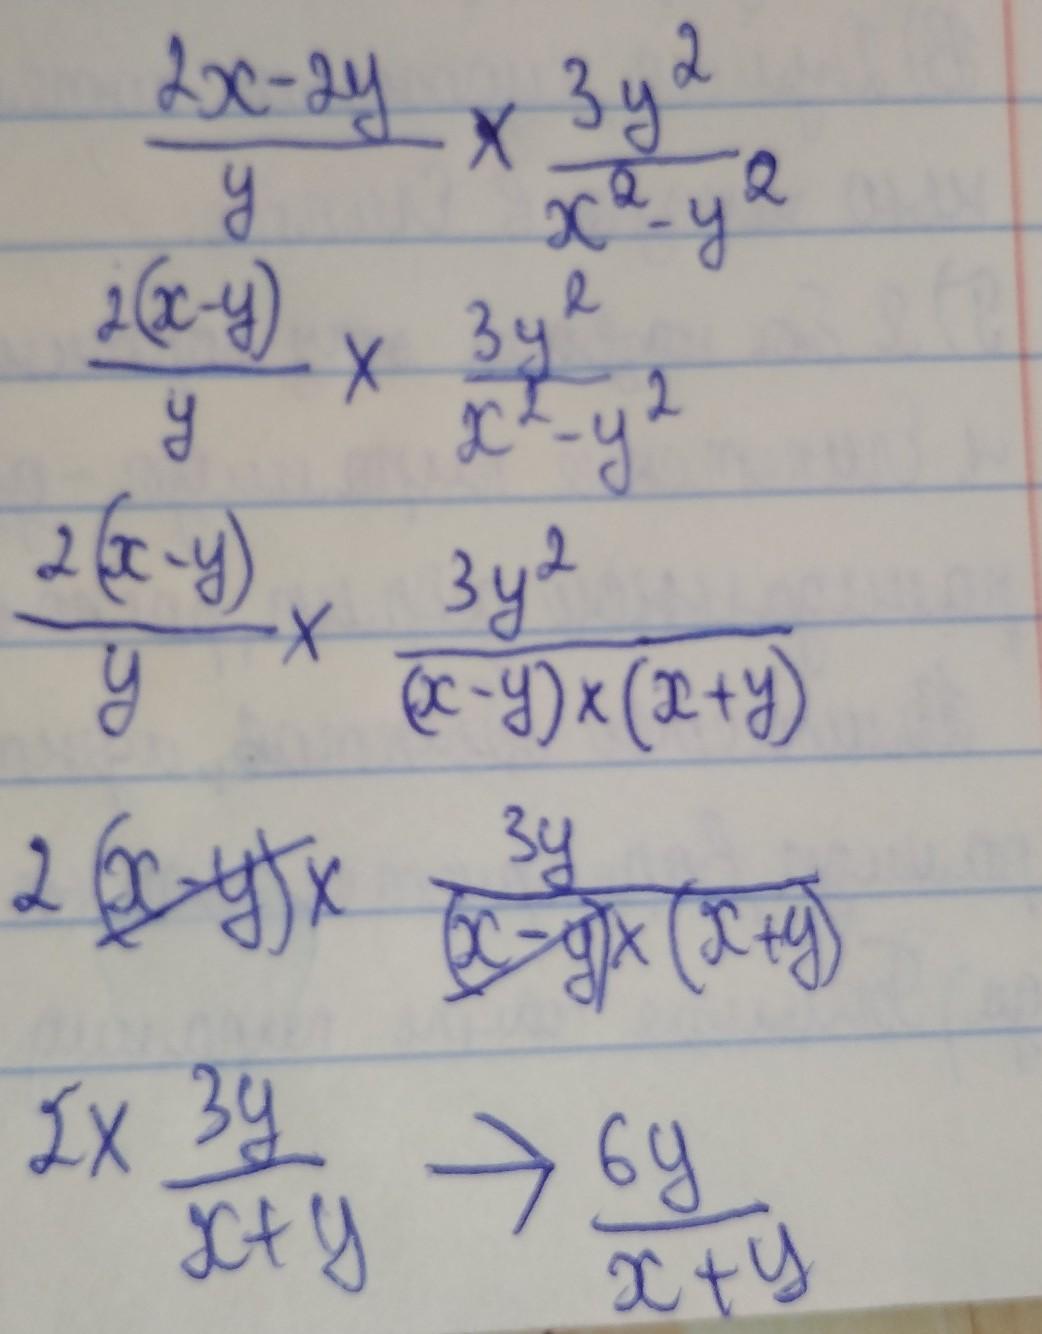 (2x-2y)/y × 3y²/(x²-y²)
2(x-y)/y × 3y²/(x²-y²)
2(x-y)/y × 3y²/((x-y)×(x+y))
2(x-y)× 3y/((x-y)×(x+y))
2× 3y/(x+y) → 6y/(x+y)